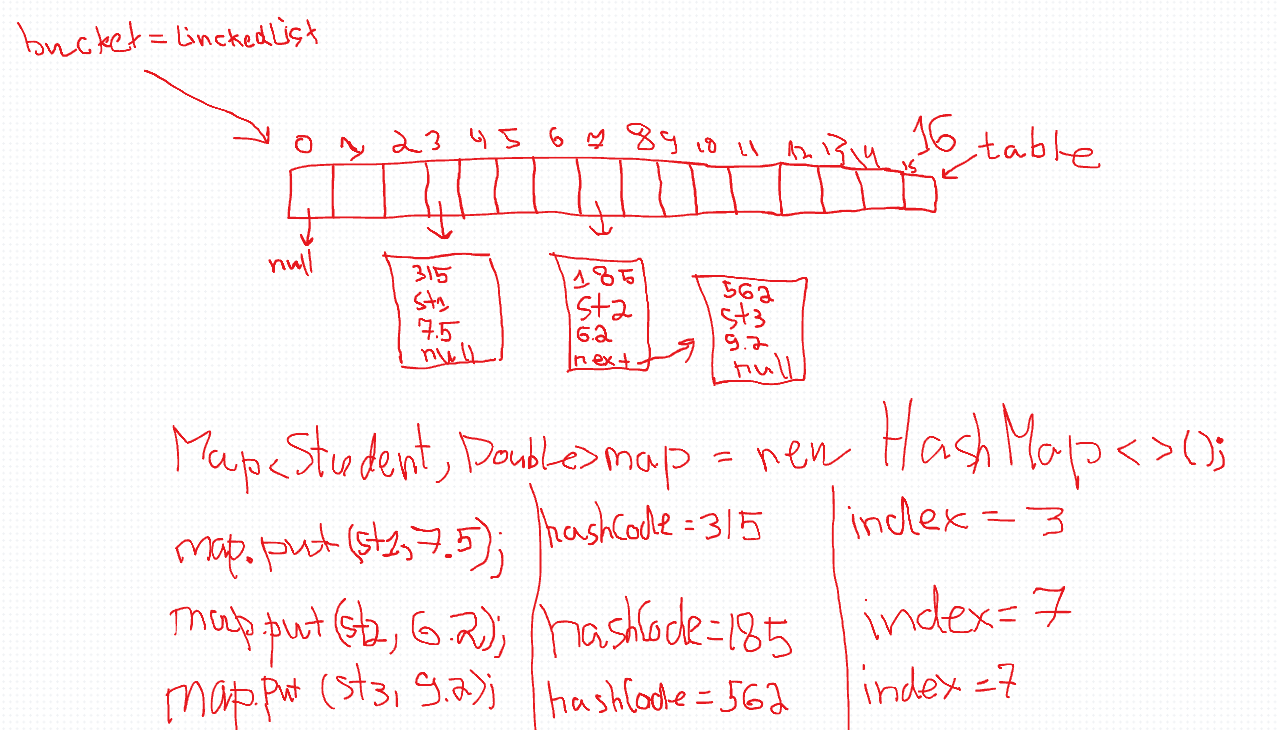 bucket = LinckedList
0 1 2 3 4 5 6 7 8 9 10 11 12 13 14 15 16
table
null
315
st1
7.5
null
185
st2
6.2
next
562
st3
9.2
null
Map<Student, Double> map = new HashMap<>();
map.put(st1, 7.5); hashCode = 315 index = 3
map.put(st2, 6.2); hashCode = 185 index = 7
map.put (st3, 9.2); hashCode = 562 index = 7